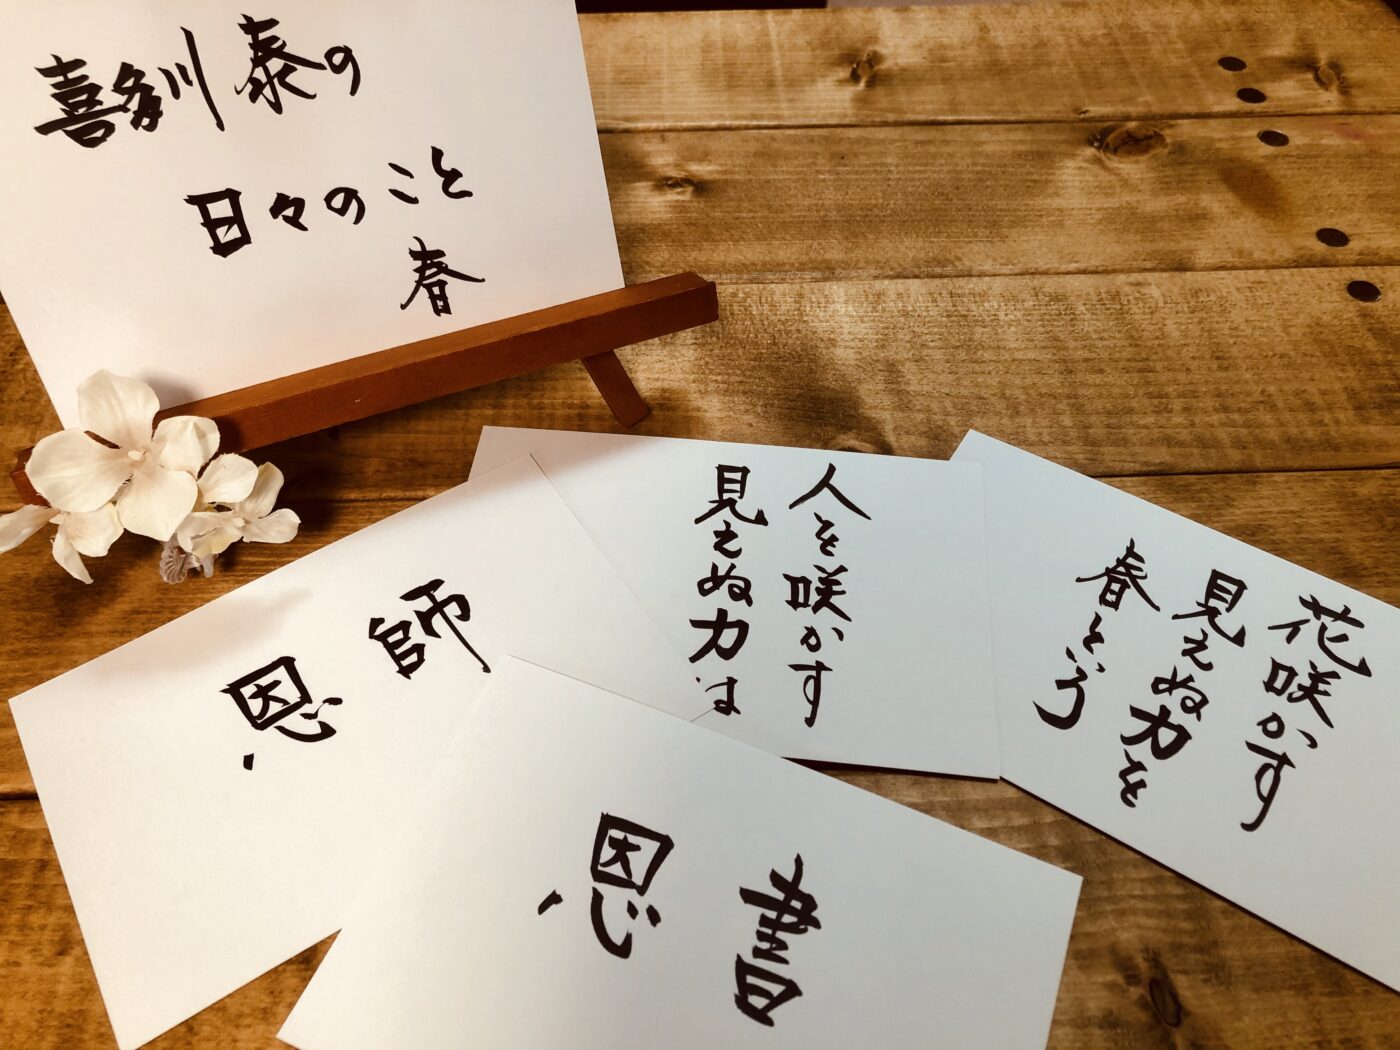 喜多川 泰の
日々のこと
春
花咲かす
見えぬ力を
春という
人を咲かす
見えぬ力は
師
恩
書
恩